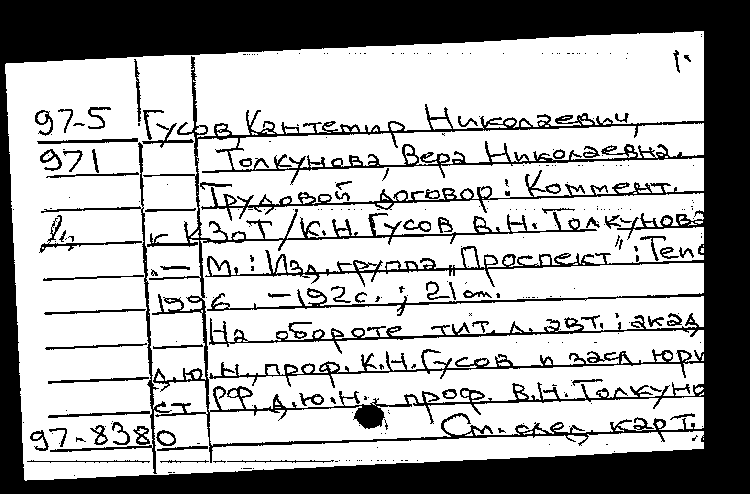 97-5 Гусов, Кантемир Николаевич,
971 Толкунова, Вера Николаевна.
Трудовой договор : Коммент.
к КЗоТ / К.Н. Гусов, В.Н. Толкунова
.— М. : Изд. группа „Проспект" : Теис
1996. —192с. ; 21 cm.
На обороте тит. л. авт. : акад
д.ю.н., проф. К.Н. Гусов и засл. юри
ст РФ, д.ю.н., проф. В.Н. Толкуно
97-8380 См. след. карт.